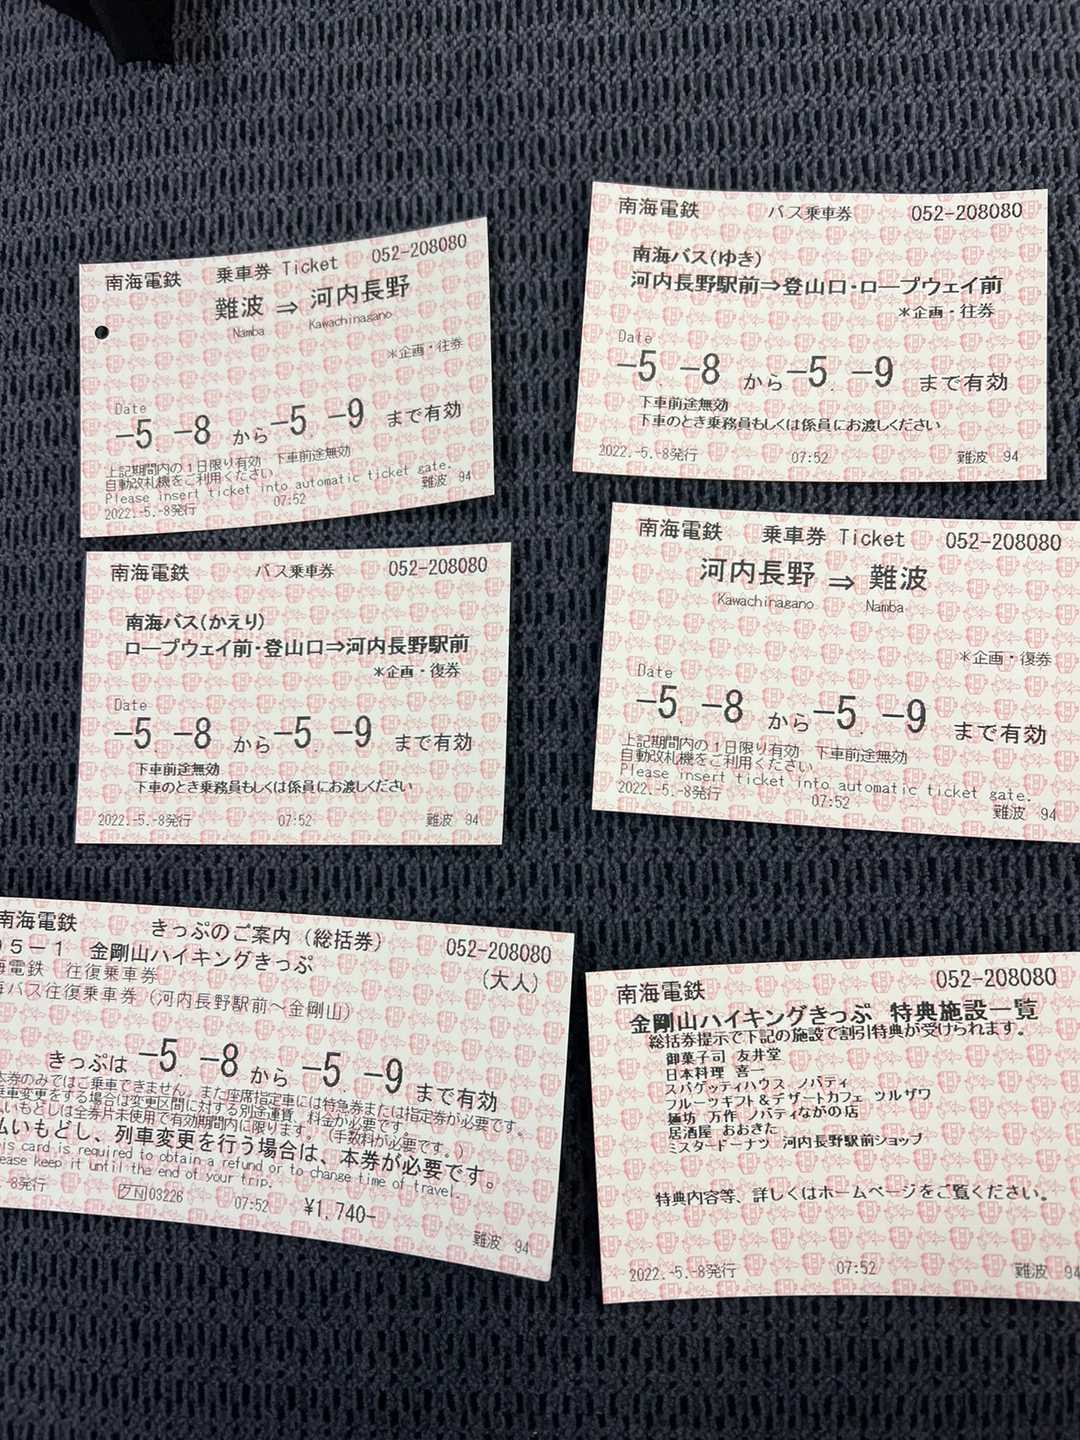 南海電鉄 乗車券 Ticket 052-208080
難波 ⇒ 河内長野
Namba Kawachinagano
*企画・往券
Date
-5. -8 から -5. -9 まで有効
上記期間内の1日限り有効 下車前途無効
自動改札機をご利用ください
Please insert ticket into automatic ticket gate.
2022.-5.-8発行 07:52 難波 94
南海電鉄 バス乗車券 052-208080
南海バス(ゆき)
河内長野駅前⇒登山口・ロープウェイ前
*企画・往券
Date
-5. -8 から -5. -9 まで有効
下車前途無効
下車のとき乗務員もしくは係員にお渡しください
2022.-5.-8発行 07:52 難波 94
南海電鉄 バス乗車券 052-208080
南海バス(かえり)
ロープウェイ前・登山口⇒河内長野駅前
*企画・復券
Date
-5. -8 から -5. -9 まで有効
下車前途無効
下車のとき乗務員もしくは係員にお渡しください
2022.-5.-8発行 07:52 難波 94
南海電鉄 乗車券 Ticket 052-208080
河内長野 ⇒ 難波
Kawachinagano Namba
*企画・復券
Date
-5. -8 から -5. -9 まで有効
上記期間内の1日限り有効 下車前途無効
自動改札機をご利用ください
Please insert ticket into automatic ticket gate.
2022.-5.-8発行 07:52 難波 94
南海電鉄 きっぷのご案内(総括券) 052-208080
05-1 金剛山ハイキングきっぷ (大人)
海電鉄 往復乗車券
海バス往復乗車券(河内長野駅前~金剛山)
きっぷは -5 -8 から -5 -9 まで有効
本券のみではご乗車できません。また座席指定車には特急券または指定券が必要です。
乗車変更をする場合は変更区間に対する別途運賃、料金が必要です。
払いもどしは全券片未使用で有効期間内に限ります。(手数料が必要です。)
払いもどし、列車変更を行う場合は、本券が必要です。
is card is required to obtain a refund or to change time of travel.
ease keep it until the end of your trip.
-8発行 03226 07:52 ¥1,740- 難波 94
南海電鉄 052-208080
金剛山ハイキングきっぷ 特典施設一覧
総括券提示で下記の施設で割引特典が受けられます。
御菓子司 友井堂
日本料理 喜一
スパゲッティハウス ノバティ
フルーツギフト&デザートカフェ ツルザワ
麺坊 万作 ノバティながの店
居酒屋 おおきた
ミスタードーナツ 河内長野駅前ショップ
特典内容等、詳しくはホームページをご覧ください。
2022.-5.-8発行 07:52 難波 94